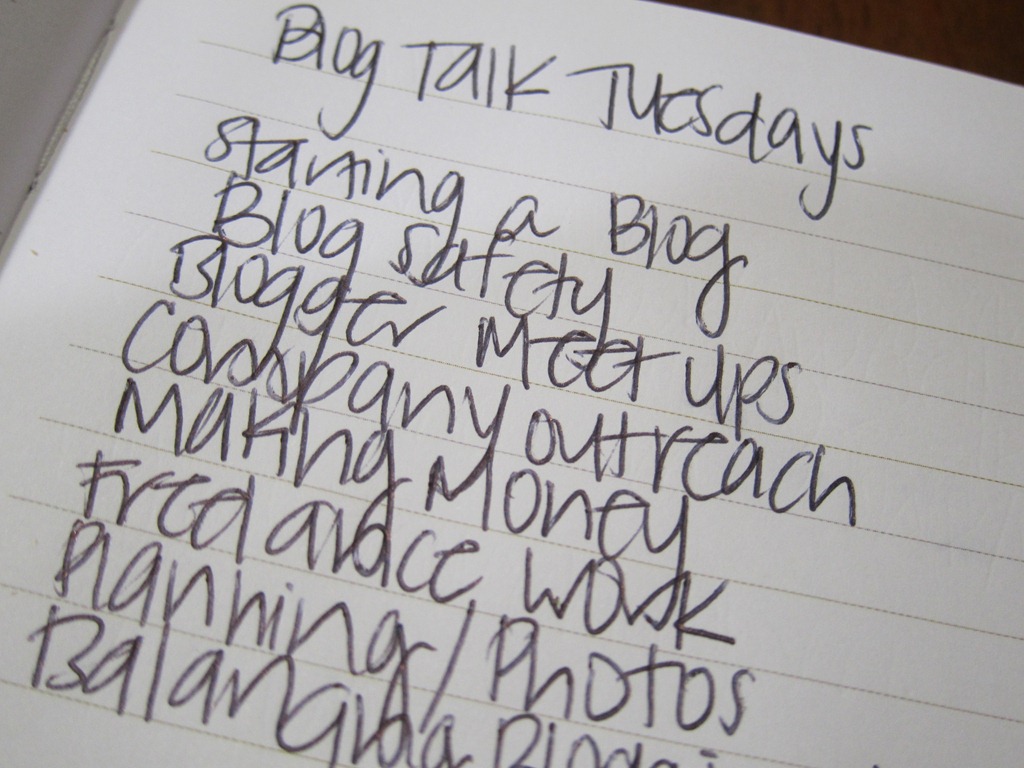 Blog Talk Tuesdays
Starting a Blog
Blog Safety
Blogger Meet ups
Company outreach
Making Money
Freelance work
Planning/Photos
Balancing a